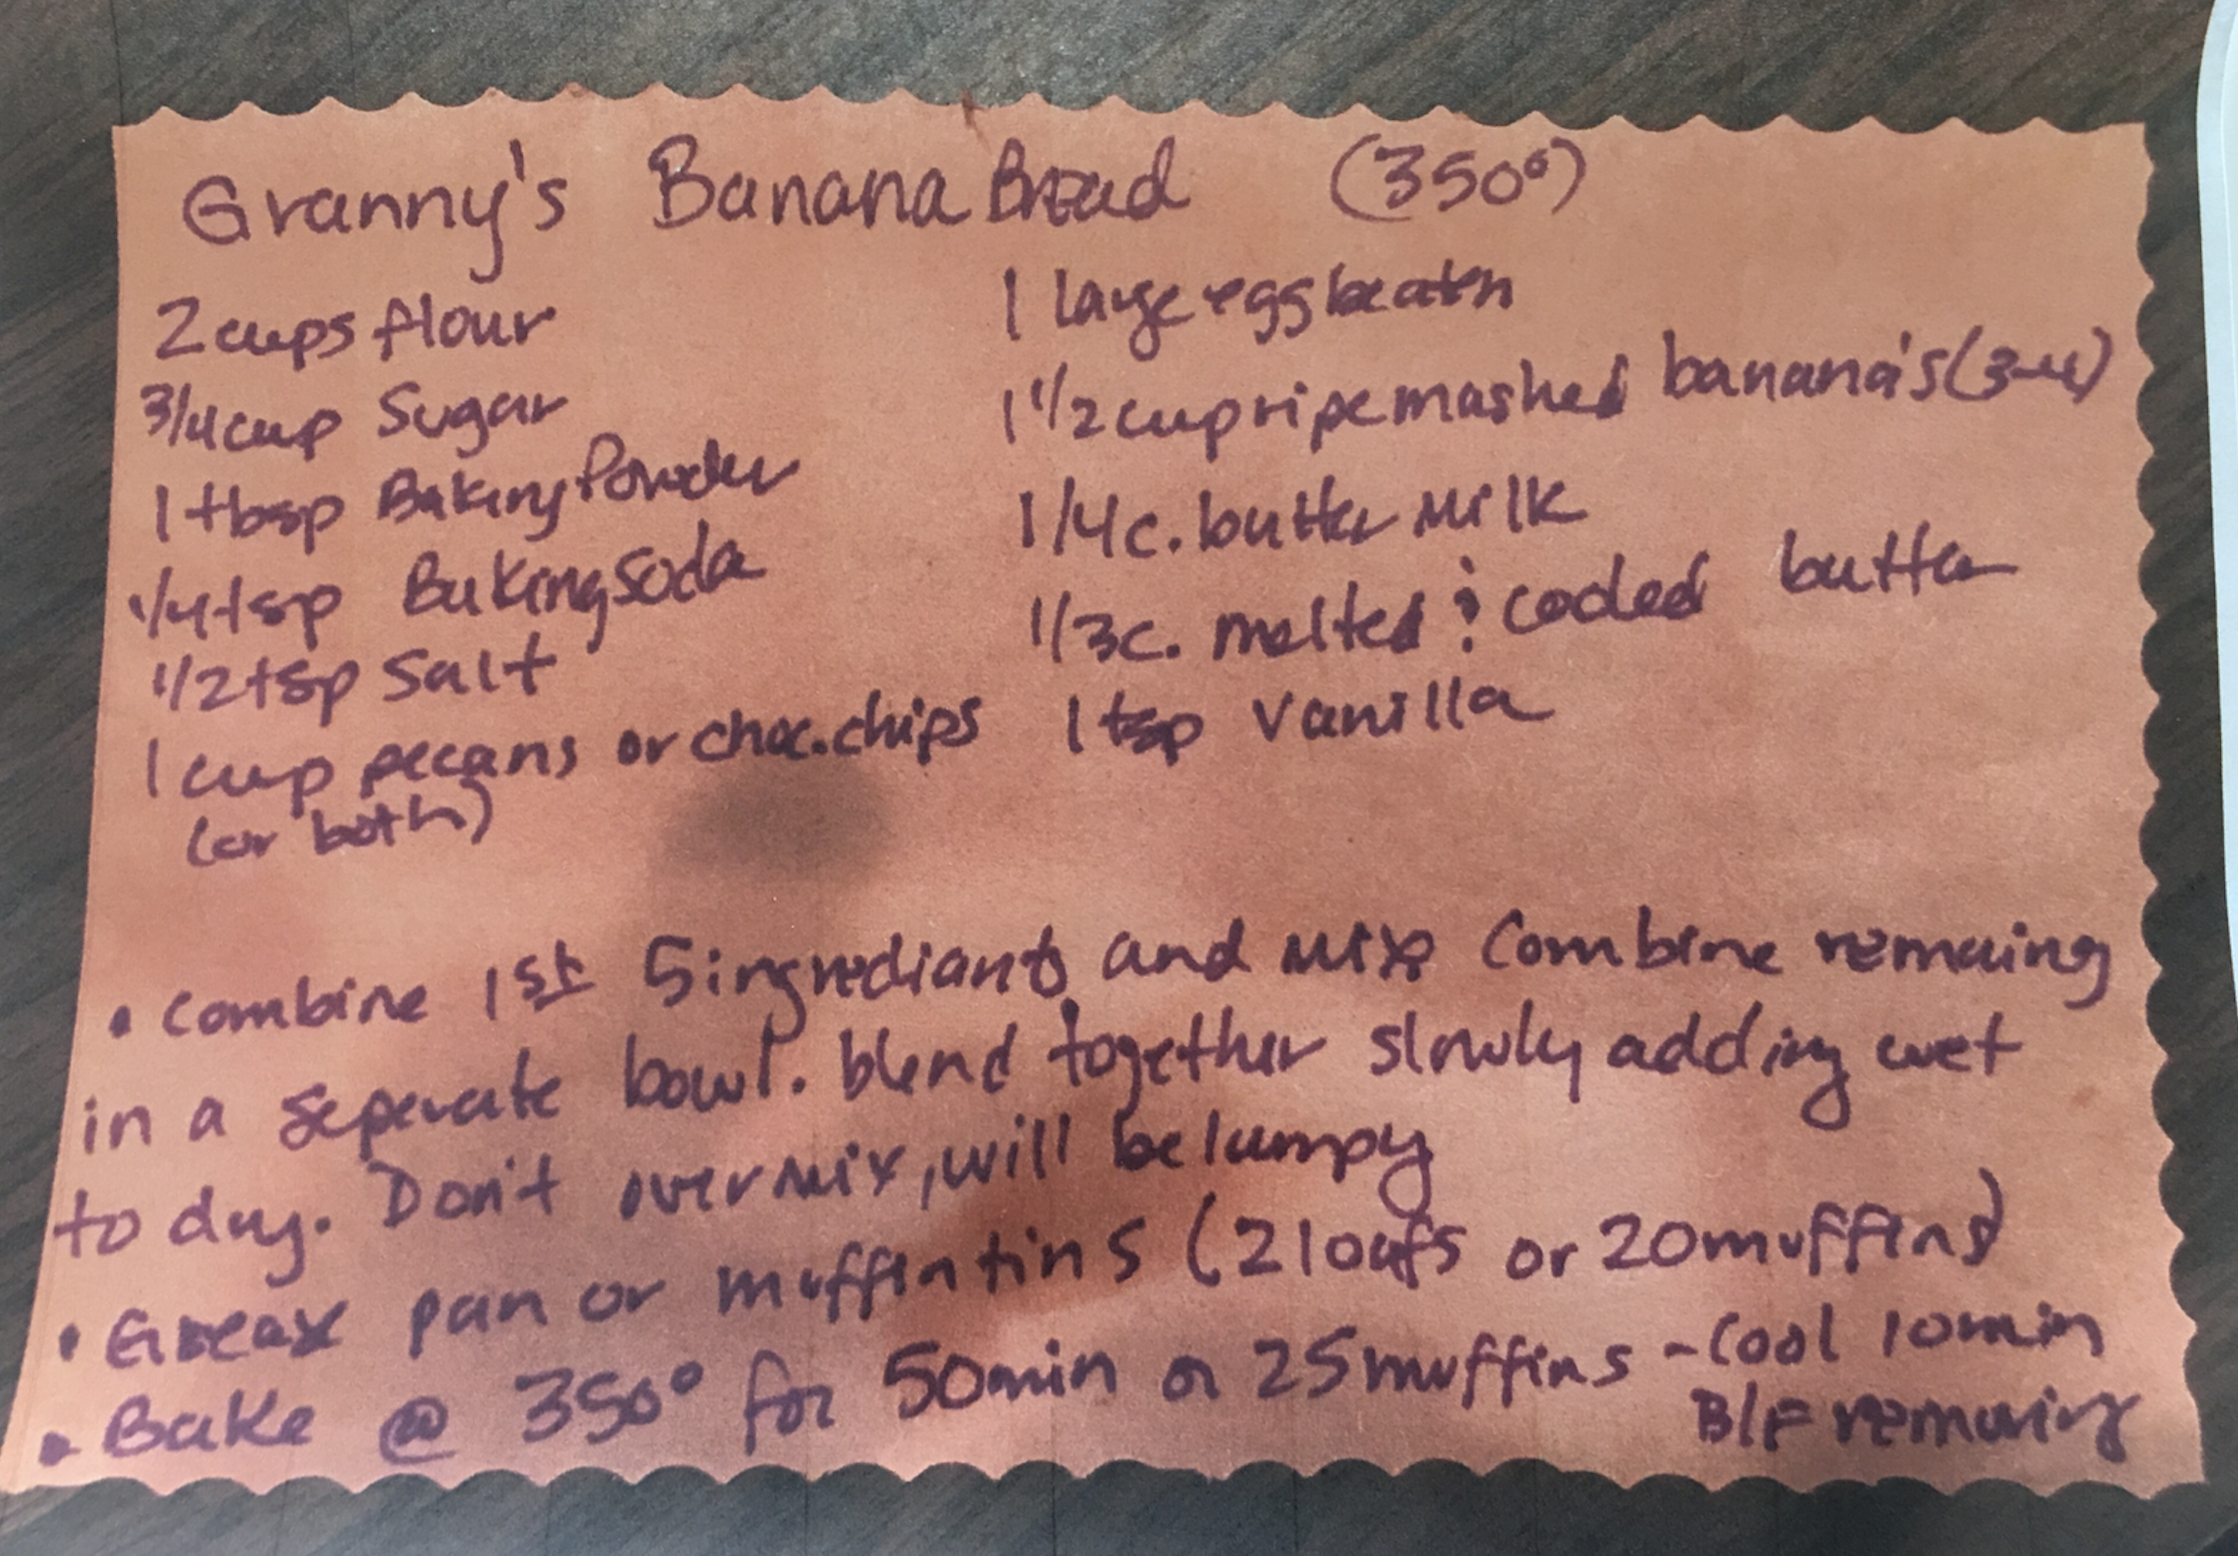 Granny's Banana Bread (350°)
2 cups flour
3/4 cup Sugar
1 tbsp Baking Powder
1/4 tsp Baking Soda
1/2 tsp Salt
1 cup pecans or choc. chips
(or both)
1 large egg beaten
1 1/2 cup ripe mashed banana's (3-4)
1/4 c. butter milk
1/3 c. melted & cooled butter
1 tsp Vanilla
• Combine 1st 5 ingrediants and mix Combine remaing
in a seperate bowl. blend together slowly adding wet
to dry. Don't over mix, will be lumpy
• Grease pan or muffin tins (2 loafs or 20 muffins)
• Bake @ 350° for 50 min or 25 muffins - Cool 10 min
B/F removing